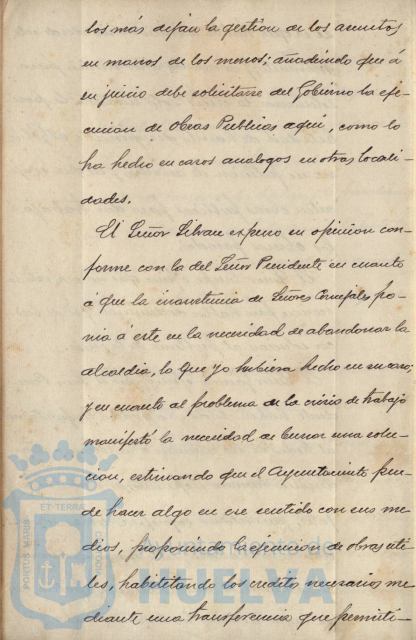 los más dejan la gestion de los asuntos
en manos de los menos; añadiendo que á
su juicio debe solicitarse del Gobierno la eje-
cucion de Obras Publicas aquí, como lo
ha hecho en casos analogos en otras locali-
dades.
El Señor Silvan expuso su opinion con-
forme con la del Señor Presidente en cuanto
á que la inasistencia de Señores Concejales po-
nia á este en la necesidad de abandonar la
alcaldia, lo que yo hubiera hecho en su caso;
y en cuanto al problema de la crisis de trabajo
manifestó la necesidad de buscar una solu-
cion, estimando que el Ayuntamiento pue-
de hacer algo en ese sentido con sus me-
dios, proponiendo la ejecucion de obras uti-
les, habilitando los creditos necesarios me-
diante una transferencia que permiti-
PORTUS MARIS
ET TERRÆ
CUSTODIA
Ayuntamiento de
HUELVA